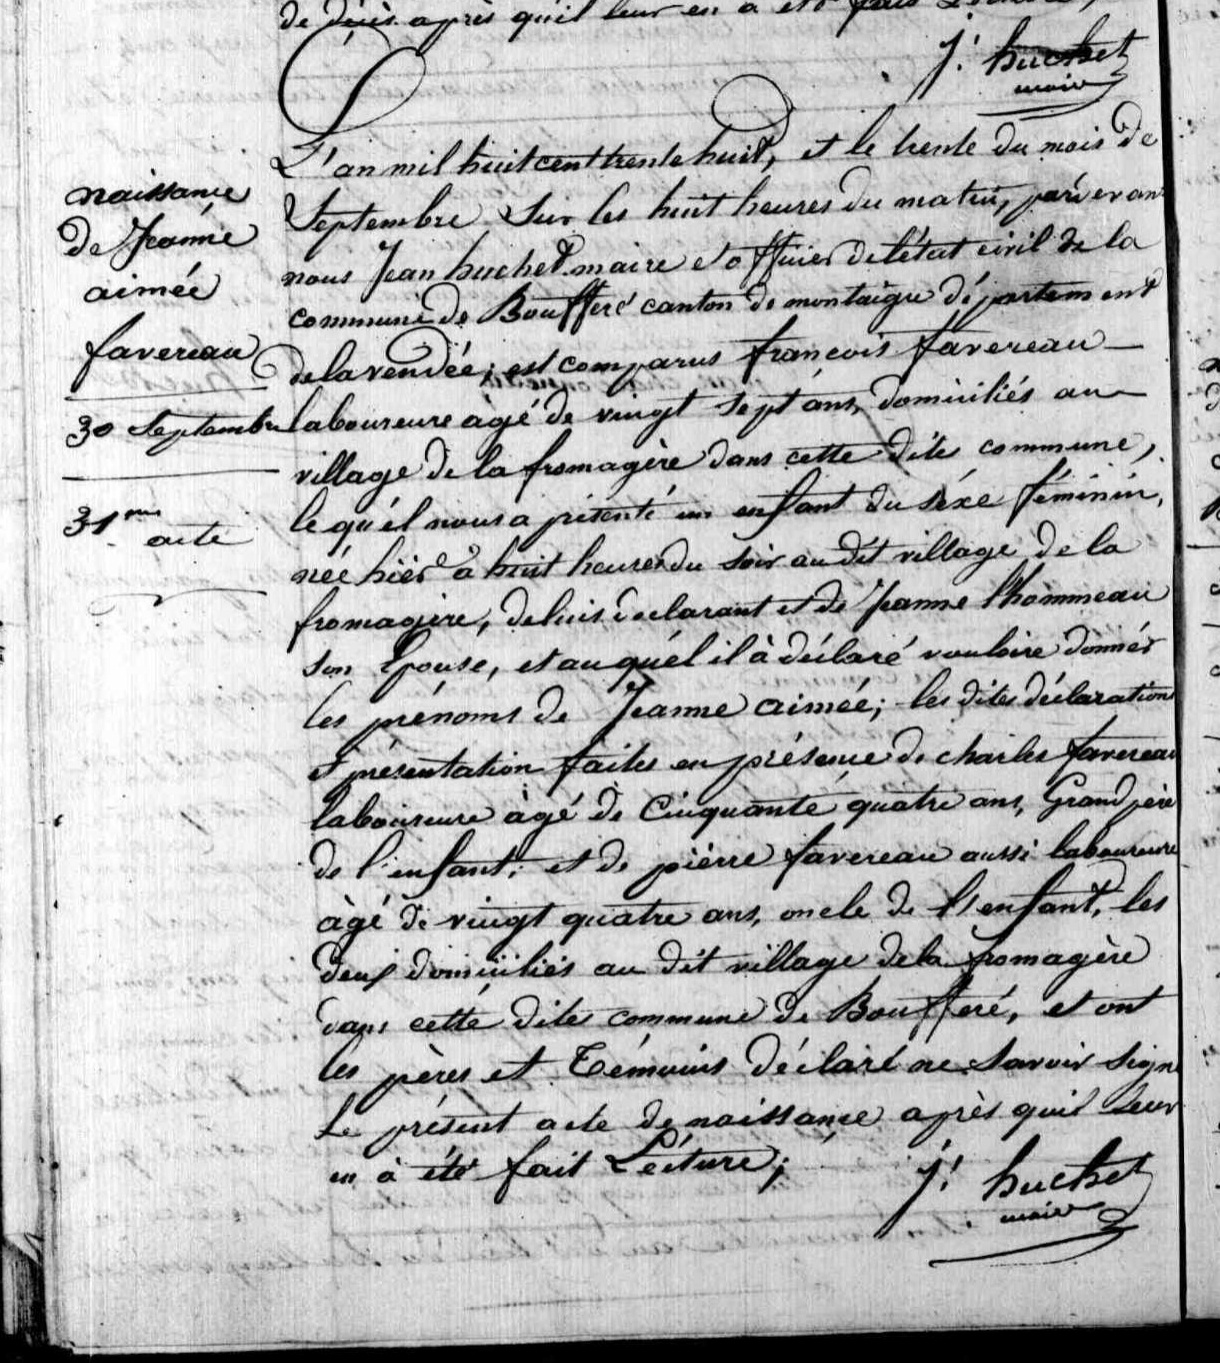 de décès après qu'il leur en a été
J! huchet
maire
naissance
de Jeanne
aimée
favereau
30 Septembre
31me
acte
L'an mil huit cent trente huit, et le trente du mois de
Septembre Sur les huit heures du matin, par devan
nous Jean huchet maire et officier de l'état civil de la
commune de Boufferé canton de montaigu département
de la vendée; est comparus francois favereau
laboureure âgé de vingt sept ans, domiciliés au
village de la fromagère dans cette dite commune,
le quél nous a présenté un enfant du séxe féminin,
née hièr à huit heures du soir au dit village de la
fromagère, de luis declarant et de Jeanne lhommeau
son Epouse, et au quél il à déclaré vouloire donnér
les prénoms de Jeanne aimée; les dites déclarations
et présentation faites en présence de charles favereau
laboureure âgé de Cinquante quatre ans, Grand père
de l'enfant; et de pièrre favereau aussi laboureure
àgé de vingt quatre ans, oncle de l'enfant, les
deux domiciliés au dit village de la fromagère
dans cette dite commune de Boufferé, et ont
les pères et Témoins déclaré ne savoir signé
Le présent acte de naissance après quil Leur
en à été fait Lécture;
J! huchet
maire